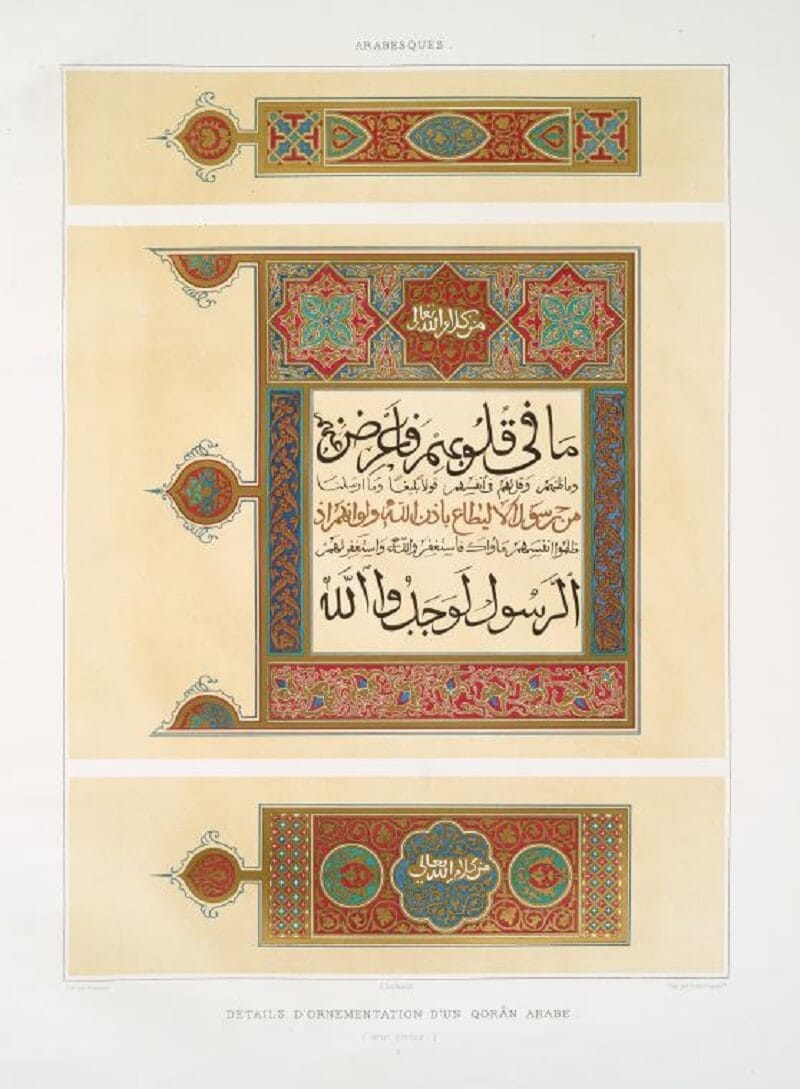 ARABESQUES.
من كلام الله تعالى
مَا فِى قُلُوبِهِمْ فَأَعْرِضْ
وقل لهم فى انفسهم قولا بليغا وما ارسلنا
من رسول الا ليطاع باذن الله ولو انهم اذ
ظلموا انفسهم جاوك فاستغفروا الله واستغفر لهم
الرَّسُول لَوَجَدُوا اللَّه
من كلام الله تعالى
DÉTAILS D'ORNEMENTATION D'UN QORÂN ARABE.